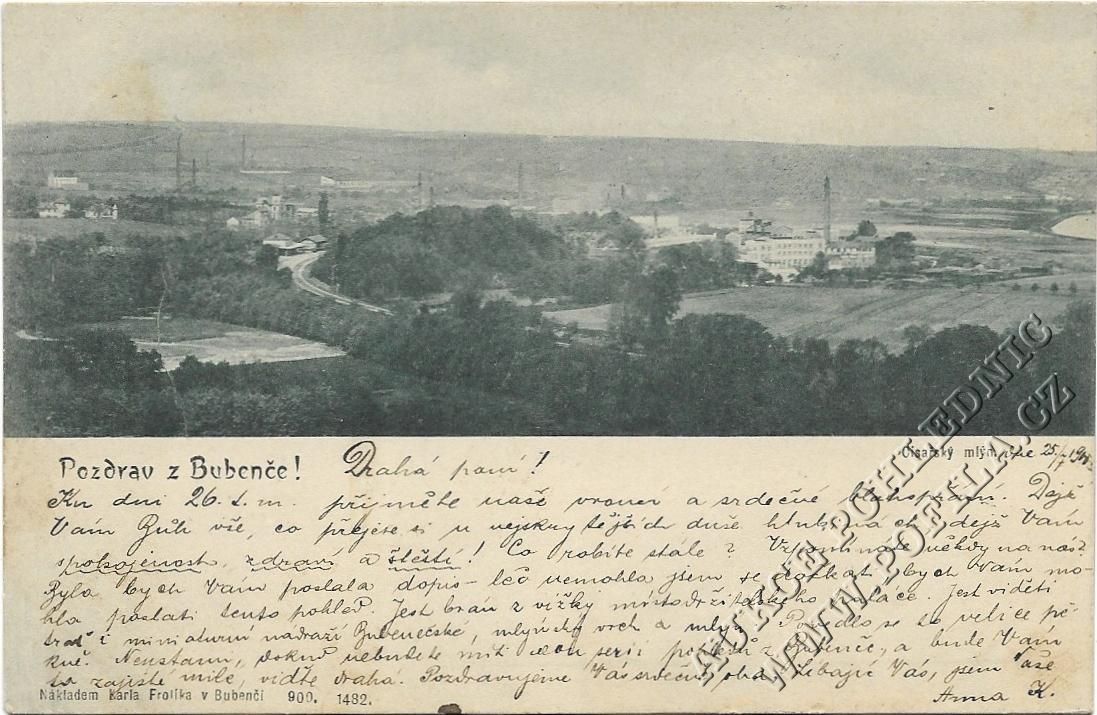 Císařský mlýn.
Pozdrav z Bubenče! Drahá paní! dne 25/7
Ku dni 26. t. m. přijměte naše vroucí a srdečné blahopřání. Dejž
Vám Bůh vše, co přejete si u nejskrytějších duše hlubinách, dejž Vám
spokojenost, zdraví a štěstí! Co robíte stále? Vzpomínáte někdy na nás?
Byla bych Vám poslala dopis – leč nemohla jsem se dočkat, bych Vám mo-
hla poslati tento pohled. Jest brán z vížky místodržitelského paláce. Jest viděti
i miniaturní nádraží Bubenečské, mlýnský vrch a mlýn. Povedlo se to velice pě-
kně. Neustanu, dokud nebudete míti celou serii pohledů z Bubenče, a bude Vám
to zajisté milé, viďte drahá. Pozdravujeme Vás srdečně, líbajíc Vás, jsem Vaše
Anna K.
Nákladem Karla Frolíka v Bubenči 900. 1482.
AUKCE POHLEDNIC
WWW.POFILA.CZ